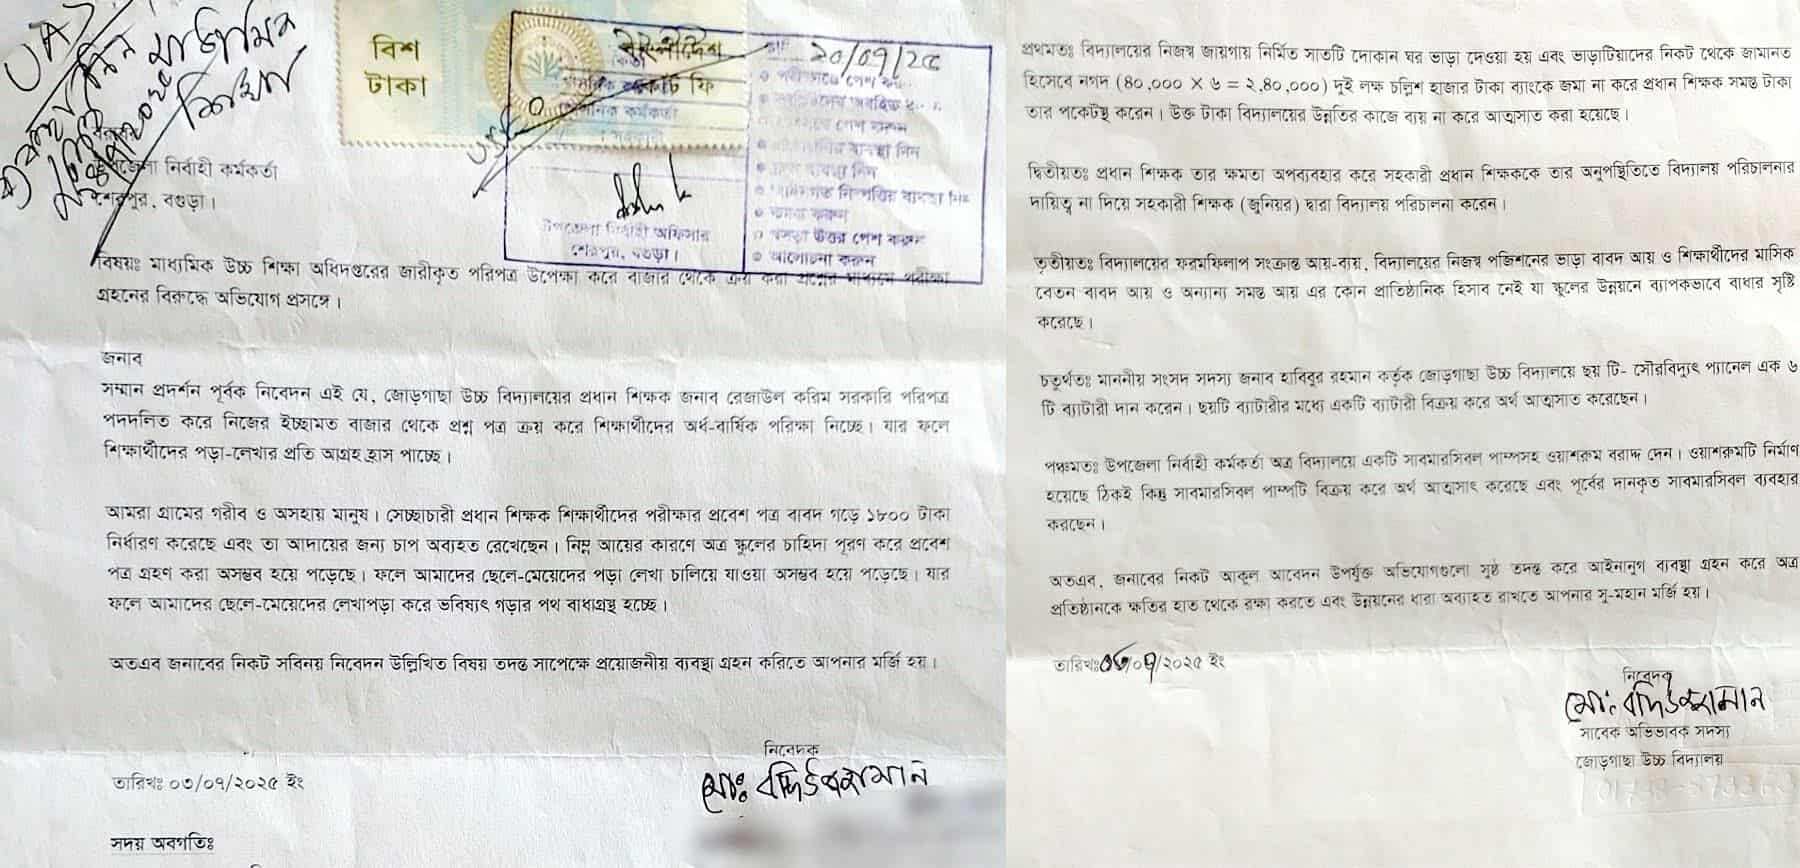 বিশ
টাকা
২০/০৭/২৫
উপজেলা নির্বাহী অফিসার
শেরপুর, বগুড়া।
বরাবর
উপজেলা নির্বাহী কর্মকর্তা
শেরপুর, বগুড়া।
বিষয়ঃ মাধ্যমিক উচ্চ শিক্ষা অধিদপ্তরের জারীকৃত পরিপত্র উপেক্ষা করে বাজার থেকে ক্রয় করা প্রশ্নের মাধ্যমে পরীক্ষা
গ্রহনের বিরুদ্ধে অভিযোগ প্রসঙ্গে।
জনাব
সম্মান প্রদর্শন পূর্বক নিবেদন এই যে, জোড়গাছা উচ্চ বিদ্যালয়ের প্রধান শিক্ষক জনাব রেজাউল করিম সরকারি পরিপত্র
পদদলিত করে নিজের ইচ্ছামত বাজার থেকে প্রশ্ন পত্র ক্রয় করে শিক্ষার্থীদের অর্ধ-বার্ষিক পরিক্ষা নিচ্ছে। যার ফলে
শিক্ষার্থীদের পড়া-লেখার প্রতি আগ্রহ হ্রাস পাচ্ছে।
আমরা গ্রামের গরীব ও অসহায় মানুষ। সেচ্ছাচারী প্রধান শিক্ষক শিক্ষার্থীদের পরীক্ষার প্রবেশ পত্র বাবদ গড়ে ১৮০০ টাকা
নির্ধারণ করেছে এবং তা আদায়ের জন্য চাপ অব্যহত রেখেছেন। নিম্ন আয়ের কারণে অত্র স্কুলের চাহিদা পূরণ করে প্রবেশ
পত্র গ্রহণ করা অসম্ভব হয়ে পড়েছে। ফলে আমাদের ছেলে-মেয়েদের পড়া লেখা চালিয়ে যাওয়া অসম্ভব হয়ে পড়েছে। যার
ফলে আমাদের ছেলে-মেয়েদের লেখাপড়া করে ভবিষ্যৎ গড়ার পথ বাধাগ্রস্থ হচ্ছে।
অতএব জনাবের নিকট সবিনয় নিবেদন উল্লিখিত বিষয় তদন্ত সাপেক্ষে প্রয়োজনীয় ব্যবস্থা গ্রহন করিতে আপনার মর্জি হয়।
নিবেদক
মোঃ বদিউজ্জামান
তারিখঃ ০৩/০৭/২০২৫ ইং
সদয় অবগতিঃ
প্রথমতঃ বিদ্যালয়ের নিজস্ব জায়গায় নির্মিত সাতটি দোকান ঘর ভাড়া দেওয়া হয় এবং ভাড়াটিয়াদের নিকট থেকে জামানত
হিসেবে নগদ (৪০,০০০ X ৬ = ২,৪০,০০০) দুই লক্ষ চল্লিশ হাজার টাকা ব্যাংকে জমা না করে প্রধান শিক্ষক সমস্ত টাকা
তার পকেটস্থ করেন। উক্ত টাকা বিদ্যালয়ের উন্নতির কাজে ব্যয় না করে আত্মসাত করা হয়েছে।
দ্বিতীয়তঃ প্রধান শিক্ষক তার ক্ষমতা অপব্যবহার করে সহকারী প্রধান শিক্ষককে তার অনুপস্থিতিতে বিদ্যালয় পরিচালনার
দায়িত্ব না দিয়ে সহকারী শিক্ষক (জুনিয়র) দ্বারা বিদ্যালয় পরিচালনা করেন।
তৃতীয়তঃ বিদ্যালয়ের ফরমফিলাপ সংক্রান্ত আয়-ব্যয়, বিদ্যালয়ের নিজস্ব পজিশনের ভাড়া বাবদ আয় ও শিক্ষার্থীদের মাসিক
বেতন বাবদ আয় ও অন্যান্য সমস্ত আয় এর কোন প্রাতিষ্ঠানিক হিসাব নেই যা স্কুলের উন্নয়নে ব্যাপকভাবে বাধার সৃষ্টি
করেছে।
চতুর্থতঃ মাননীয় সংসদ সদস্য জনাব হাবিবুর রহমান কর্তৃক জোড়গাছা উচ্চ বিদ্যালয়ে ছয় টি- সৌরবিদ্যুৎ প্যানেল এক ৬
টি ব্যাটারী দান করেন। ছয়টি ব্যাটারীর মধ্যে একটি ব্যাটারী বিক্রয় করে অর্থ আত্মসাত করেছেন।
পঞ্চমতঃ উপজেলা নির্বাহী কর্মকর্তা অত্র বিদ্যালয়ে একটি সাবমারসিবল পাম্পসহ ওয়াশরুম বরাদ্দ দেন। ওয়াশরুমটি নির্মাণ
হয়েছে ঠিকই কিন্তু সাবমারসিবল পাম্পটি বিক্রয় করে অর্থ আত্মসাৎ করেছে এবং পূর্বের দানকৃত সাবমারসিবল ব্যবহার
করছেন।
অতএব, জনাবের নিকট আকুল আবেদন উপর্যুক্ত অভিযোগগুলো সুষ্ঠ তদন্ত করে আইনানুগ ব্যবস্থা গ্রহন করে অত্র
প্রতিষ্ঠানকে ক্ষতির হাত থেকে রক্ষা করতে এবং উন্নয়নের ধারা অব্যাহত রাখতে আপনার সু-মহান মর্জি হয়।
তারিখঃ০৩/০৭/২০২৫ ইং
নিবেদক
মোঃ বদিউজ্জামান
সাবেক অভিভাবক সদস্য
জোড়গাছা উচ্চ বিদ্যালয়